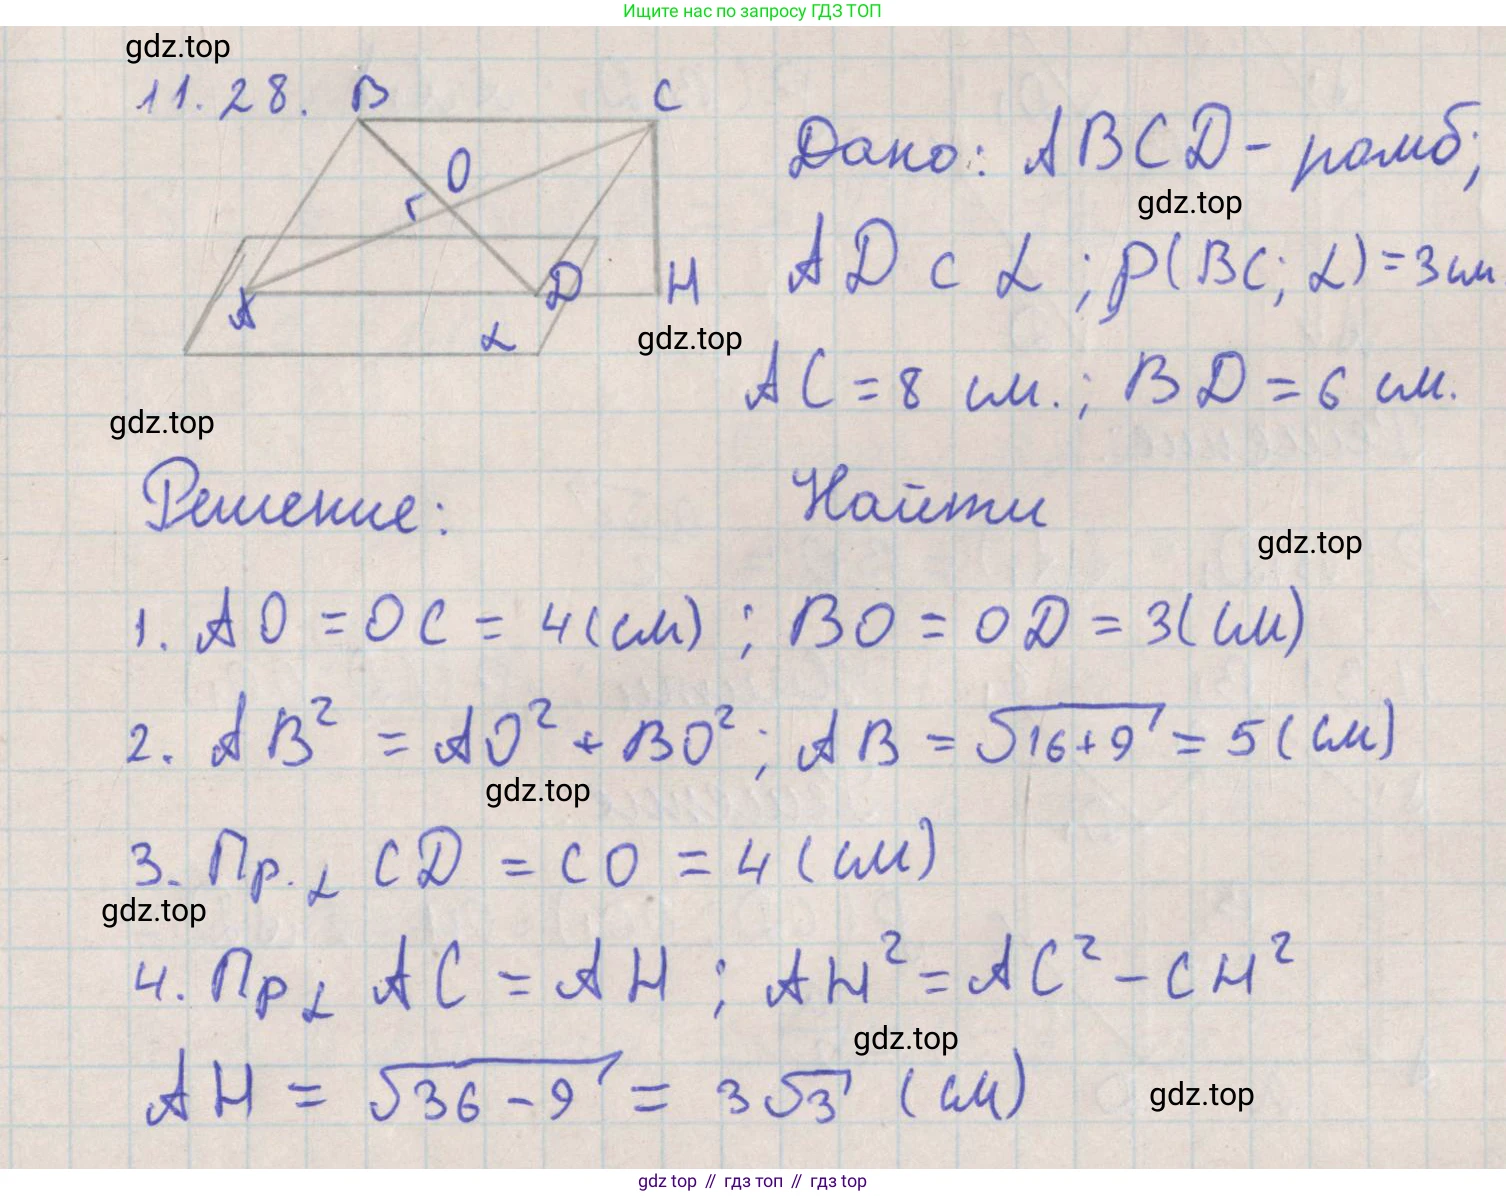 Ищите нас по запросу ГДЗ ТОП
gdz.top
11.28. B C
O
A D H
α
gdz.top
gdz.top
Дано: ABCD - ромб;
gdz.top
AD ⊂ α; ρ(BC; α) = 3 см
AC = 8 см.; BD = 6 см.
Решение: Найти
gdz.top
1. AO = OC = 4 (см); BO = OD = 3 (см)
2. AB² = AO² + BO²; AB = √16+9 = 5 (см)
gdz.top
3. Пр.α CD = CO = 4 (см)
gdz.top
4. Прα AC = AH; AH² = AC² - CH²
gdz.top
AH = √36-9 = 3√3 (см)
gdz.top
gdz top // гдз топ // гдз top